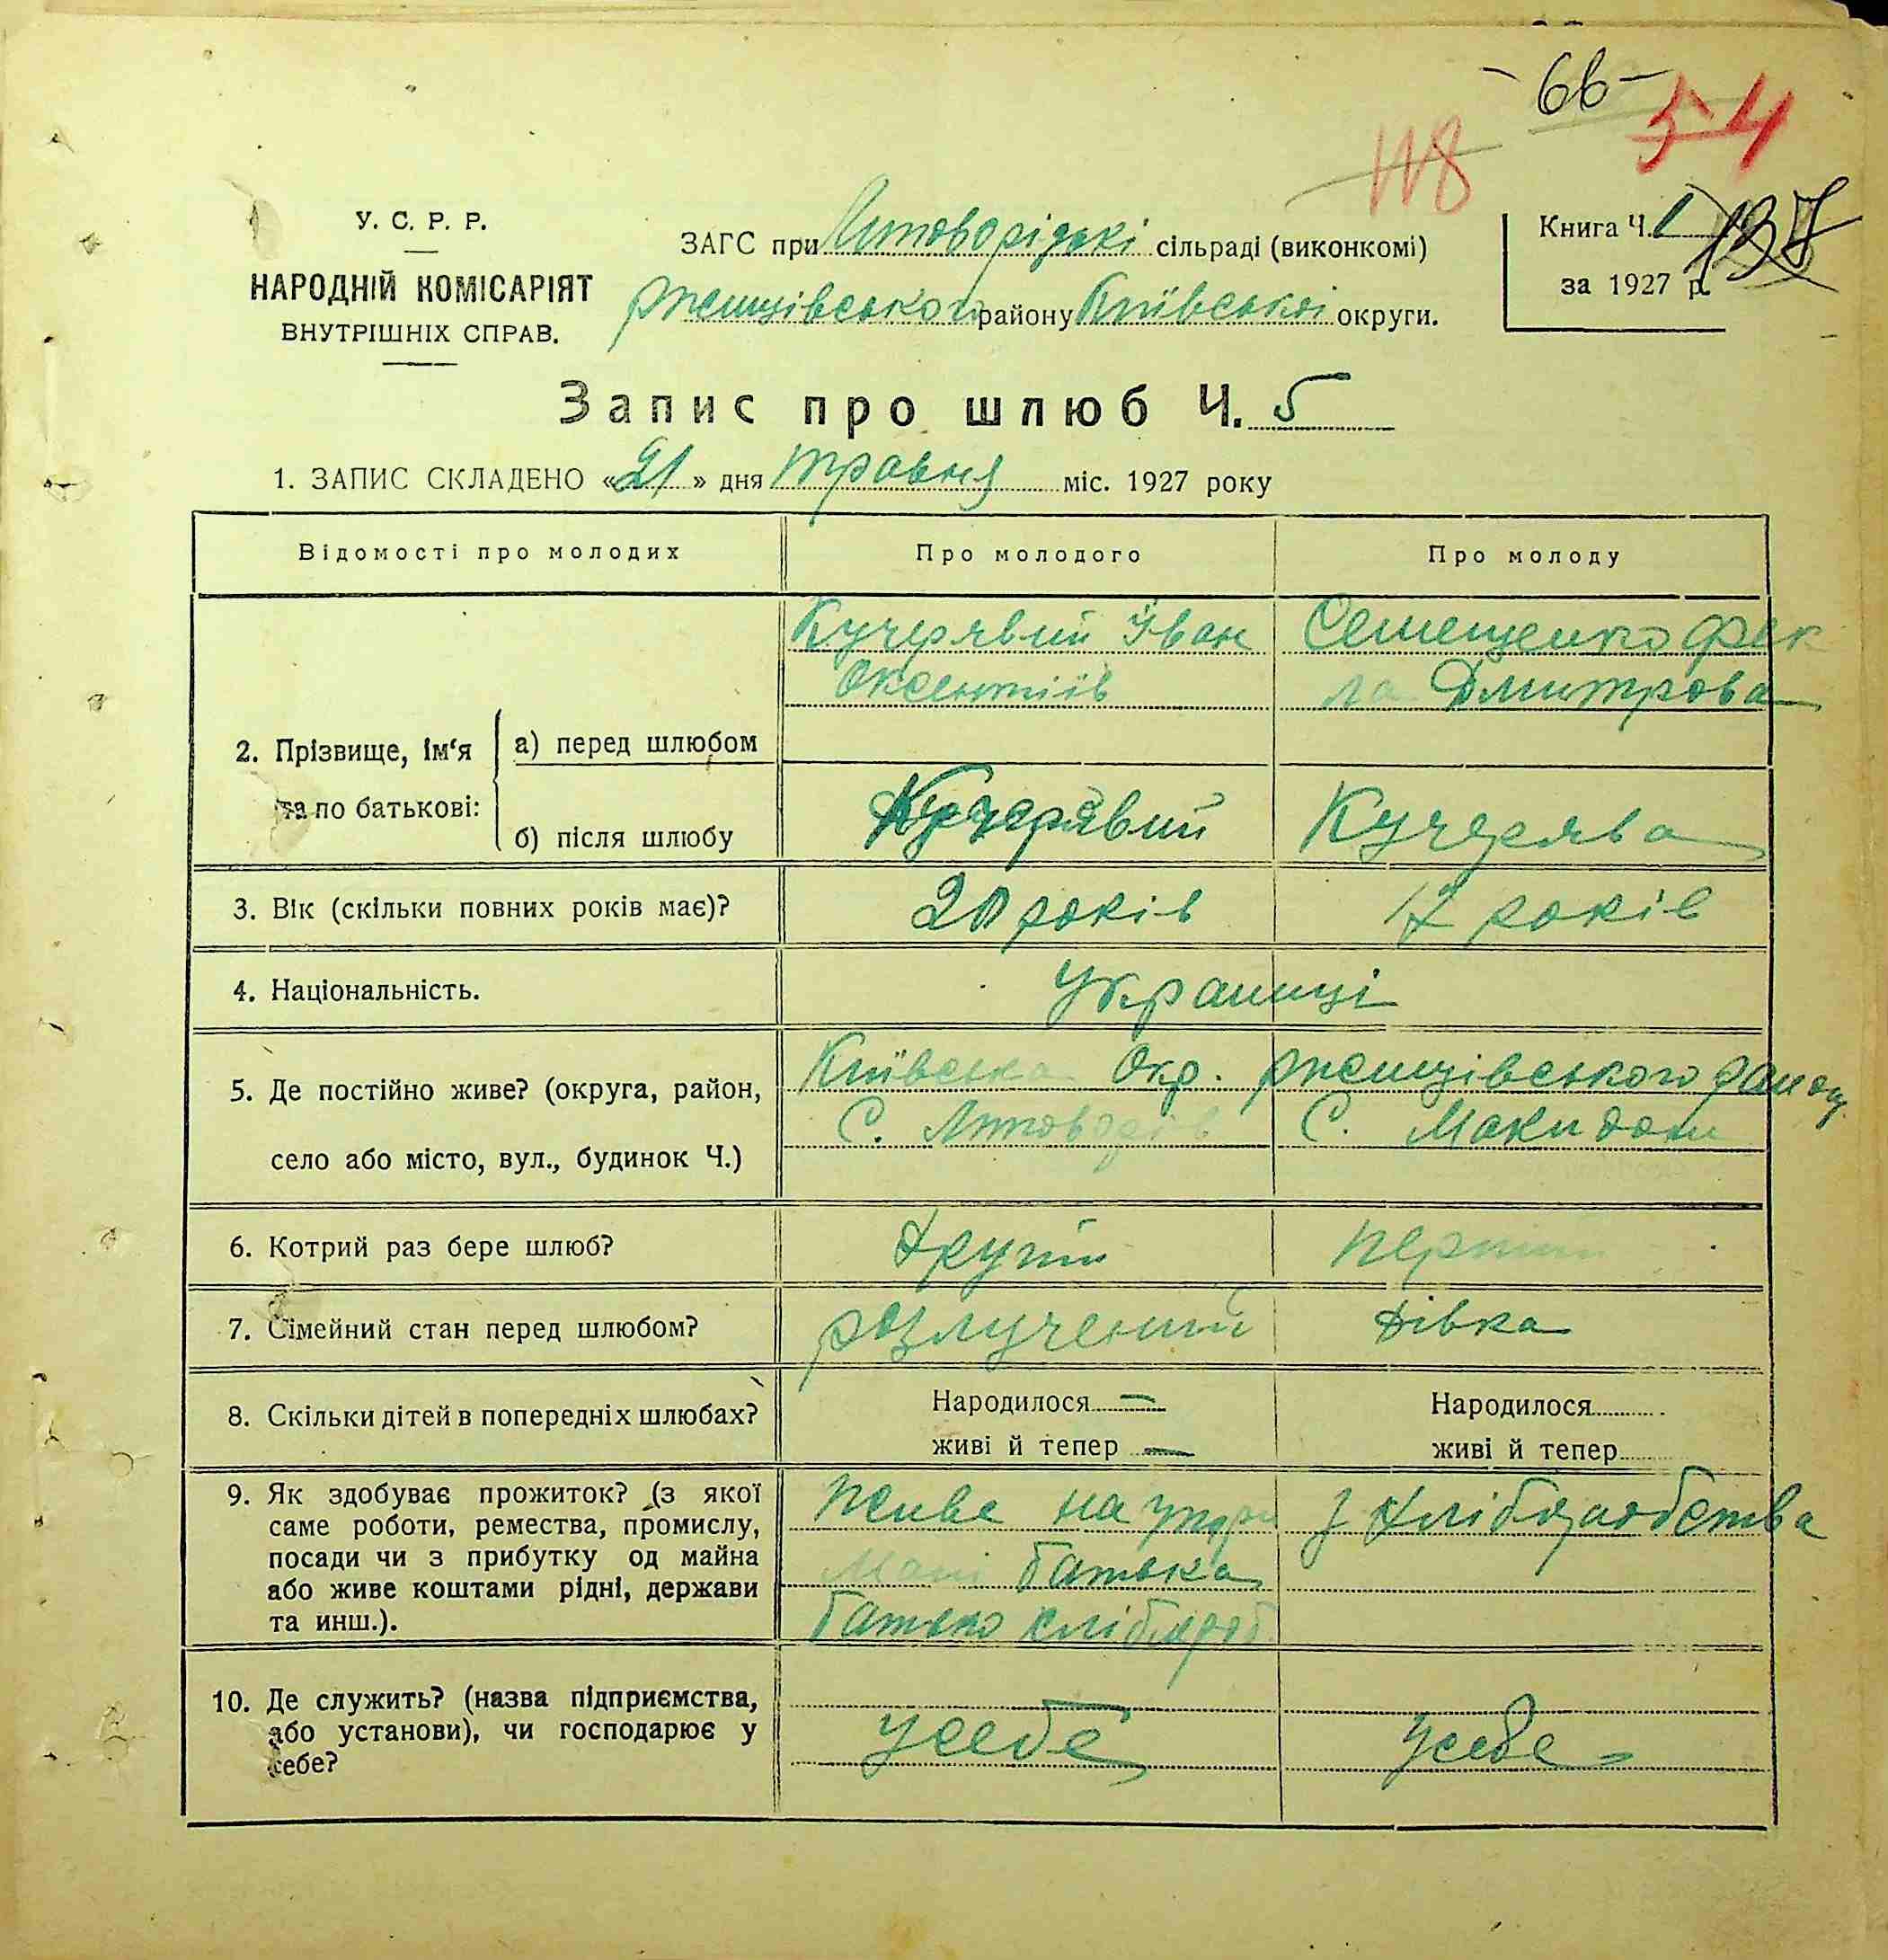 - 66 -
54
118
У. С. Р. Р.
НАРОДНІЙ КОМІСАРІЯТ
ВНУТРІШНІХ СПРАВ.
ЗАГС при сільраді (виконкомі)
Ржищівського району Київської округи.
Книга Ч. 1
за 1927 р.
137
Запис про шлюб Ч. 5
1. ЗАПИС СКЛАДЕНО «21» дня травня міс. 1927 року
Відомості про молодих
Про молодого
Про молоду
2. Прізвище, ім‘я та по батькові:
а) перед шлюбом
Кучерявий Іван
Оксентіїв
Семещенко Фек
ла Дмитрова
б) після шлюбу
Кучерявий
Кучерява
3. Вік (скільки повних років має)?
20 років
17 років
4. Національність.
Українці
5. Де постійно живе? (округа, район,
село або місто, вул., будинок Ч.)
Київська Окр. Ржищівського району
С.
С. Македони
6. Котрий раз бере шлюб?
другий
перший
7. Сімейний стан перед шлюбом?
розлучений
дівка
8. Скільки дітей в попередніх шлюбах?
Народилося —
живі й тепер —
Народилося
живі й тепер
9. Як здобуває прожиток? (з якої
саме роботи, ремества, промислу,
посади чи з прибутку од майна
або живе коштами рідні, держави
та инш.).
Живе на
батька
батько хлібороб
з хліборобства
10. Де служить? (назва підприємства,
або установи), чи господарює у
себе?
у себе
у себе